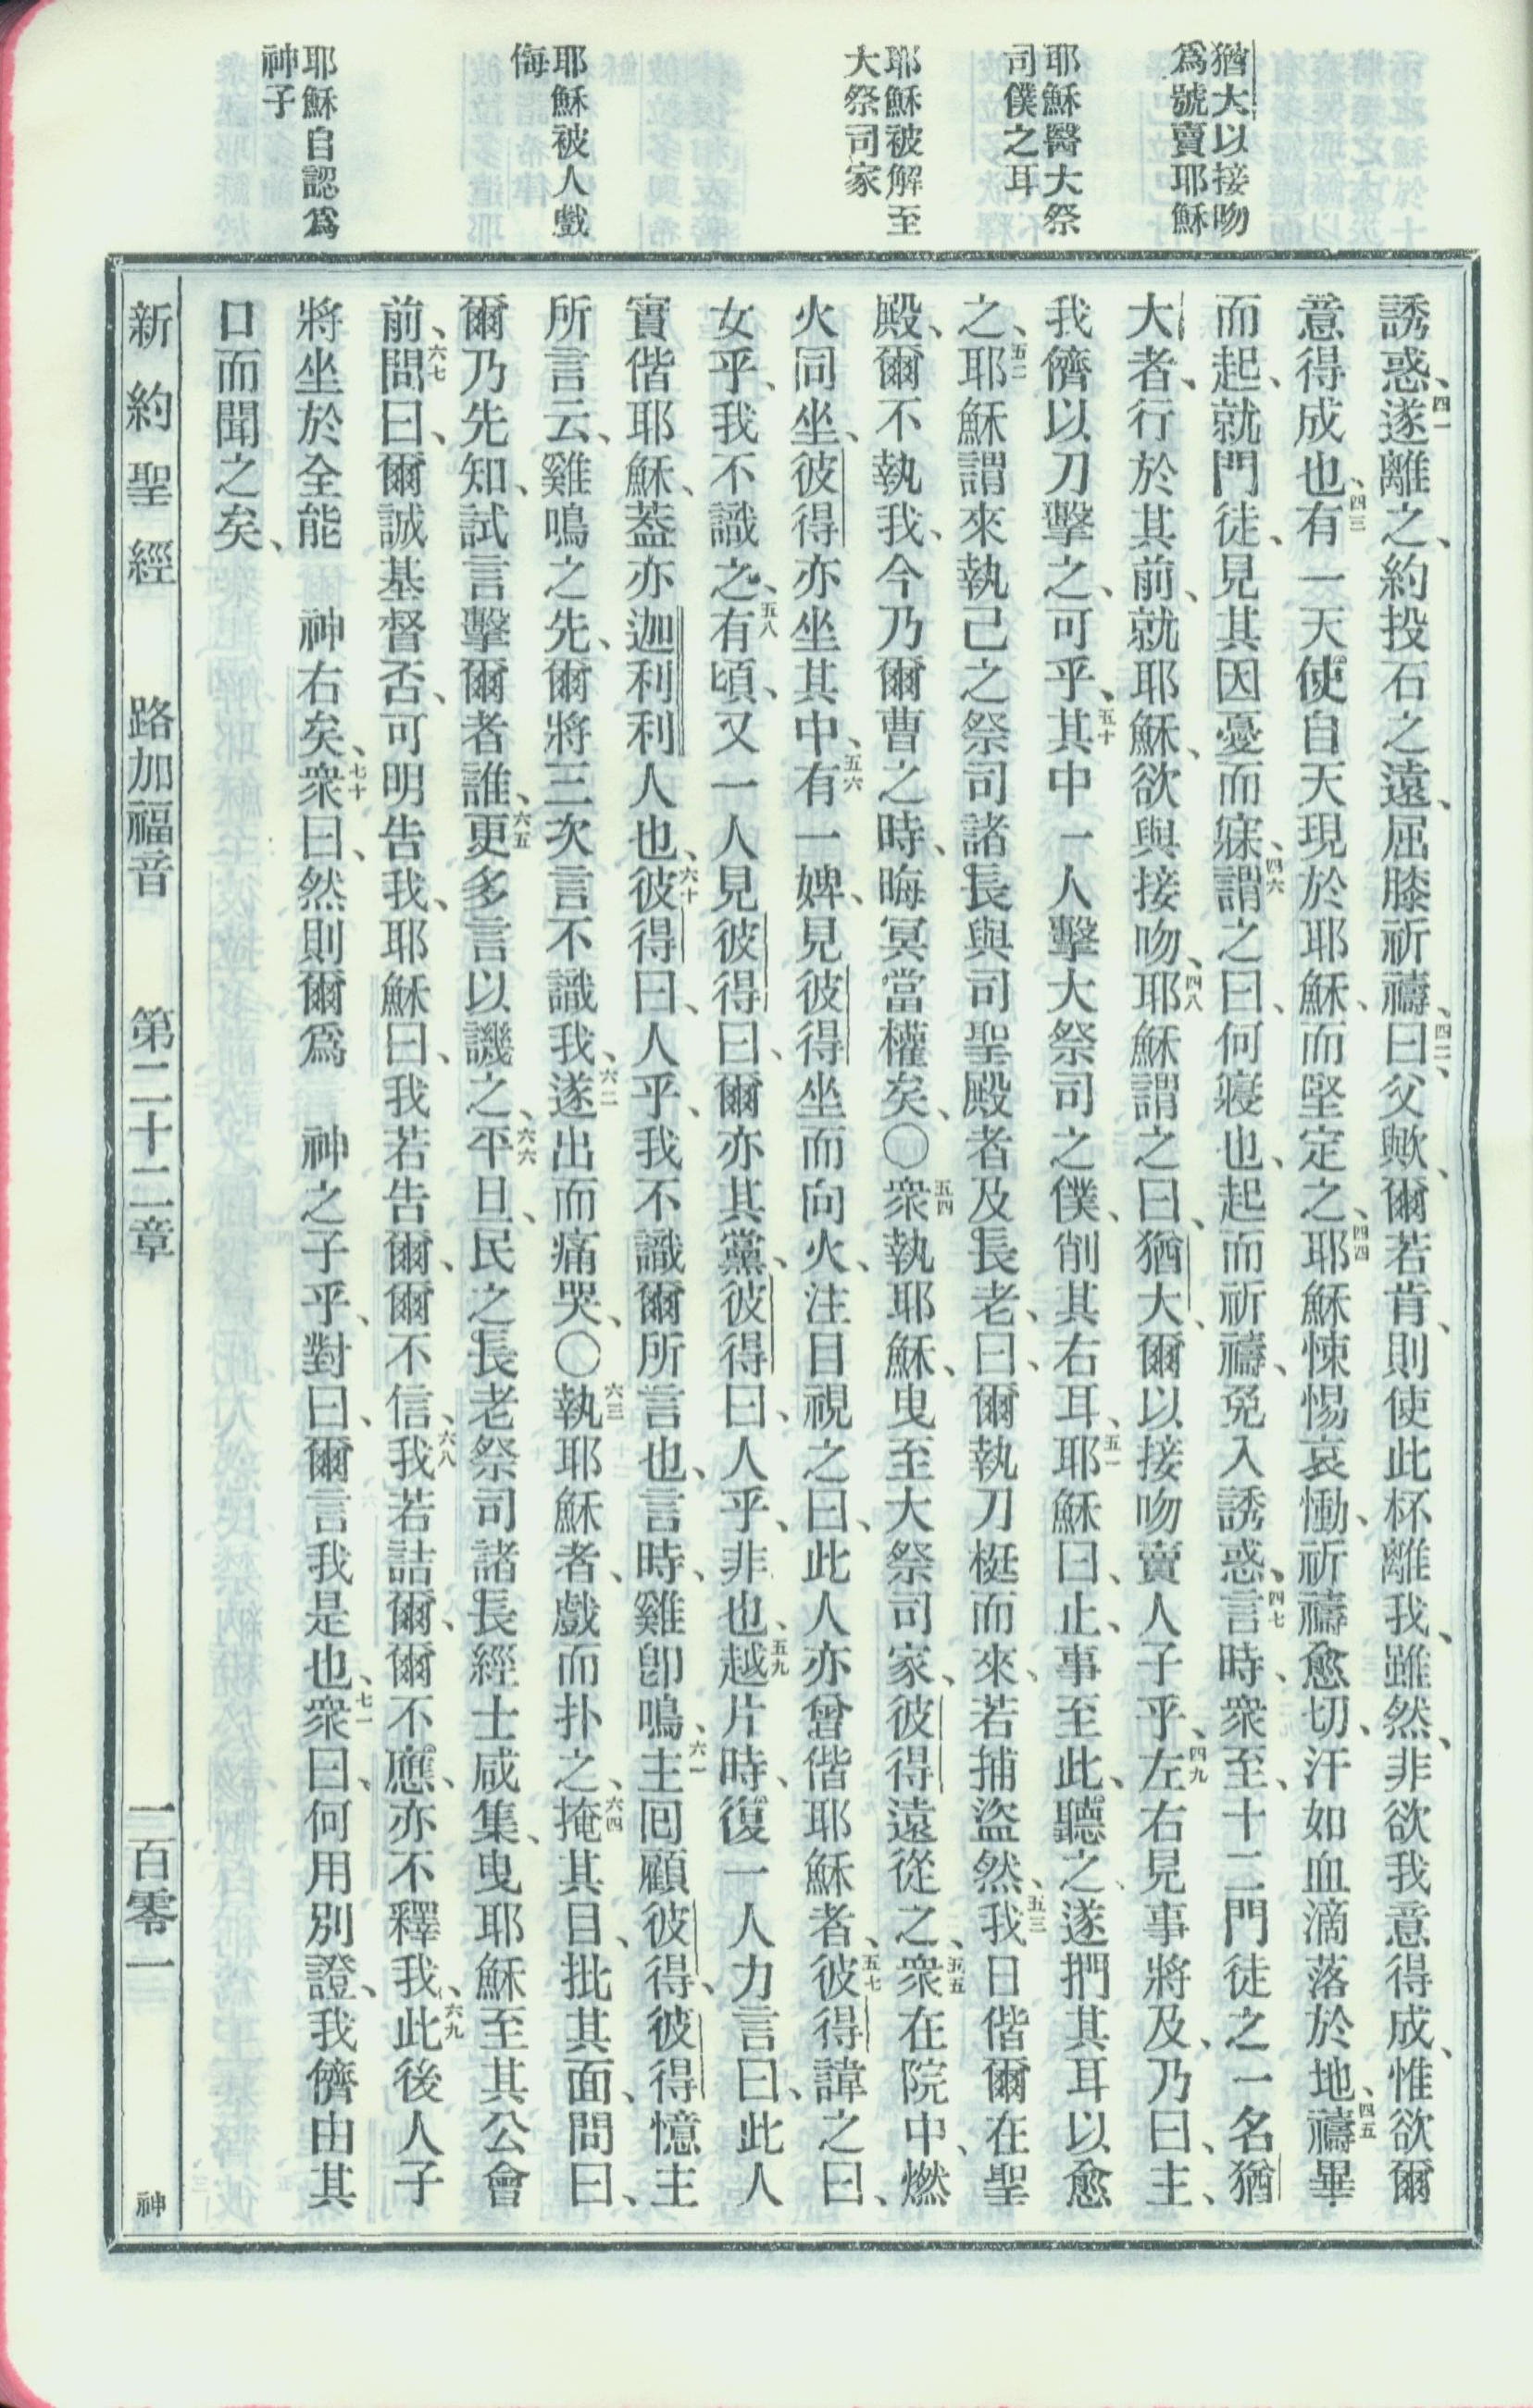 猶大以接吻
爲號賣耶穌
耶穌醫大祭
司僕之耳
耶穌被解至
大祭司家
耶穌被人戲
侮
耶穌自認爲
神子
誘惑、四一遂離之、約投石之遠、屈膝祈禱、四二曰、父歟、爾若肯、則使此杯離我、雖然、非欲我意得成、惟欲爾
意得成也、四三有一天使自天現於耶穌、而堅定之、四四耶穌悚惕哀慟、祈禱愈切、汗如血滴落於地、四五禱畢
而起、就門徒、見其因憂而寐、四六謂之曰、何寢也、起而祈禱、免入誘惑、四七言時、衆至、十二門徒之一名猶
大者、行於其前、就耶穌、欲與接吻、四八耶穌謂之曰、猶大、爾以接吻賣人子乎、四九左右見事將及、乃曰、主、
我儕以刀擊之、可乎、五十其中一人擊大祭司之僕、削其右耳、五一耶穌曰、止、事至此、聽之、遂捫其耳以愈
之、五二耶穌謂來執己之祭司諸長與司聖殿者及長老、曰、爾執刀梃而來、若捕盜然、五三我日偕爾在聖
殿、爾不執我、今乃爾曹之時、晦冥當權矣、〇五四衆執耶穌、曳至大祭司家、彼得遠從之、五五衆在院中、燃
火同坐、彼得亦坐其中、五六有一婢、見彼得坐而向火、注目視之、曰、此人亦曾偕耶穌者、五七彼得諱之曰、
女乎、我不識之、五八有頃、又一人見彼得曰、爾亦其黨、彼得曰、人乎、非也、五九越片時、復一人力言曰、此人
實偕耶穌、蓋亦迦利利人也、六十彼得曰、人乎、我不識爾所言也、言時、雞卽鳴、六一主回顧彼得、彼得憶主
所言云、雞鳴之先、爾將三次言不識我、六二遂出而痛哭、〇六三執耶穌者、戲而扑之、六四掩其目、批其面、問曰、
爾乃先知、試言擊爾者誰、六五更多言以譏之、六六平旦、民之長老祭司諸長經士咸集、曳耶穌至其公會
前、六七問曰、爾誠基督否、可明告我、耶穌曰、我若告爾、爾不信、六八我若詰爾、爾不應、亦不釋我、六九此後人子
將坐於全能　神右矣、七十衆曰、然則爾爲　神之子乎、對曰、爾言我是也、七一衆曰、何用別證、我儕由其
口而聞之矣、
新約聖經　路加福音　第二十二章　一百零一　神